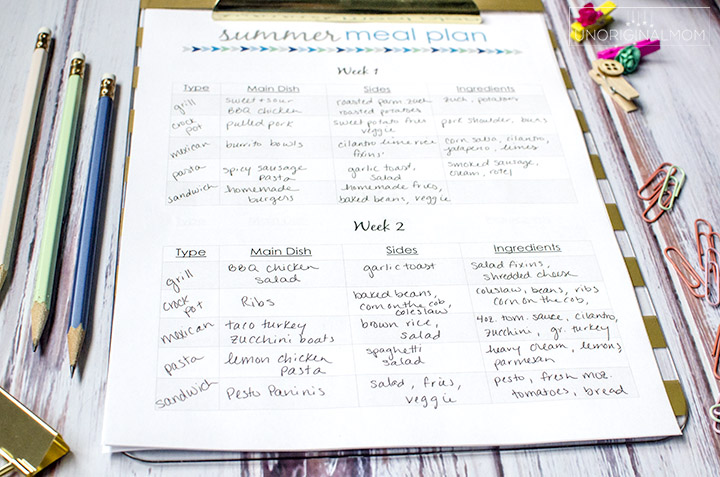 UNORIGINALMOM
summer meal plan
Week 1
Type Main Dish Sides Ingredients
grill sweet + sour BBQ chicken roasted parm zuch roasted potatoes zuch, potatoes
crock pot pulled pork sweet potato fries veggie pork shoulder, buns
mexican burrito bowls cilantro lime rice fixins' corn salsa, cilantro, jalapeno, limes
pasta spicy sausage pasta garlic toast, salad smoked sausage, cream, rotel
sandwich homemade burgers homemade fries, baked beans, veggie
Week 2
Type Main Dish Sides Ingredients
grill BBQ chicken salad garlic toast salad fixins, shredded cheese
crock pot Ribs baked beans, corn on the cob, coleslaw coleslaw, beans, ribs corn on the cob,
mexican taco turkey zucchini boats brown rice, salad 4oz. tom. sauce, cilantro, zucchini, gr. turkey
pasta lemon chicken pasta spaghetti salad heavy cream, lemons, parmesan
sandwich Pesto Paninis salad, fries, veggie pesto, fresh moz. tomatoes, bread